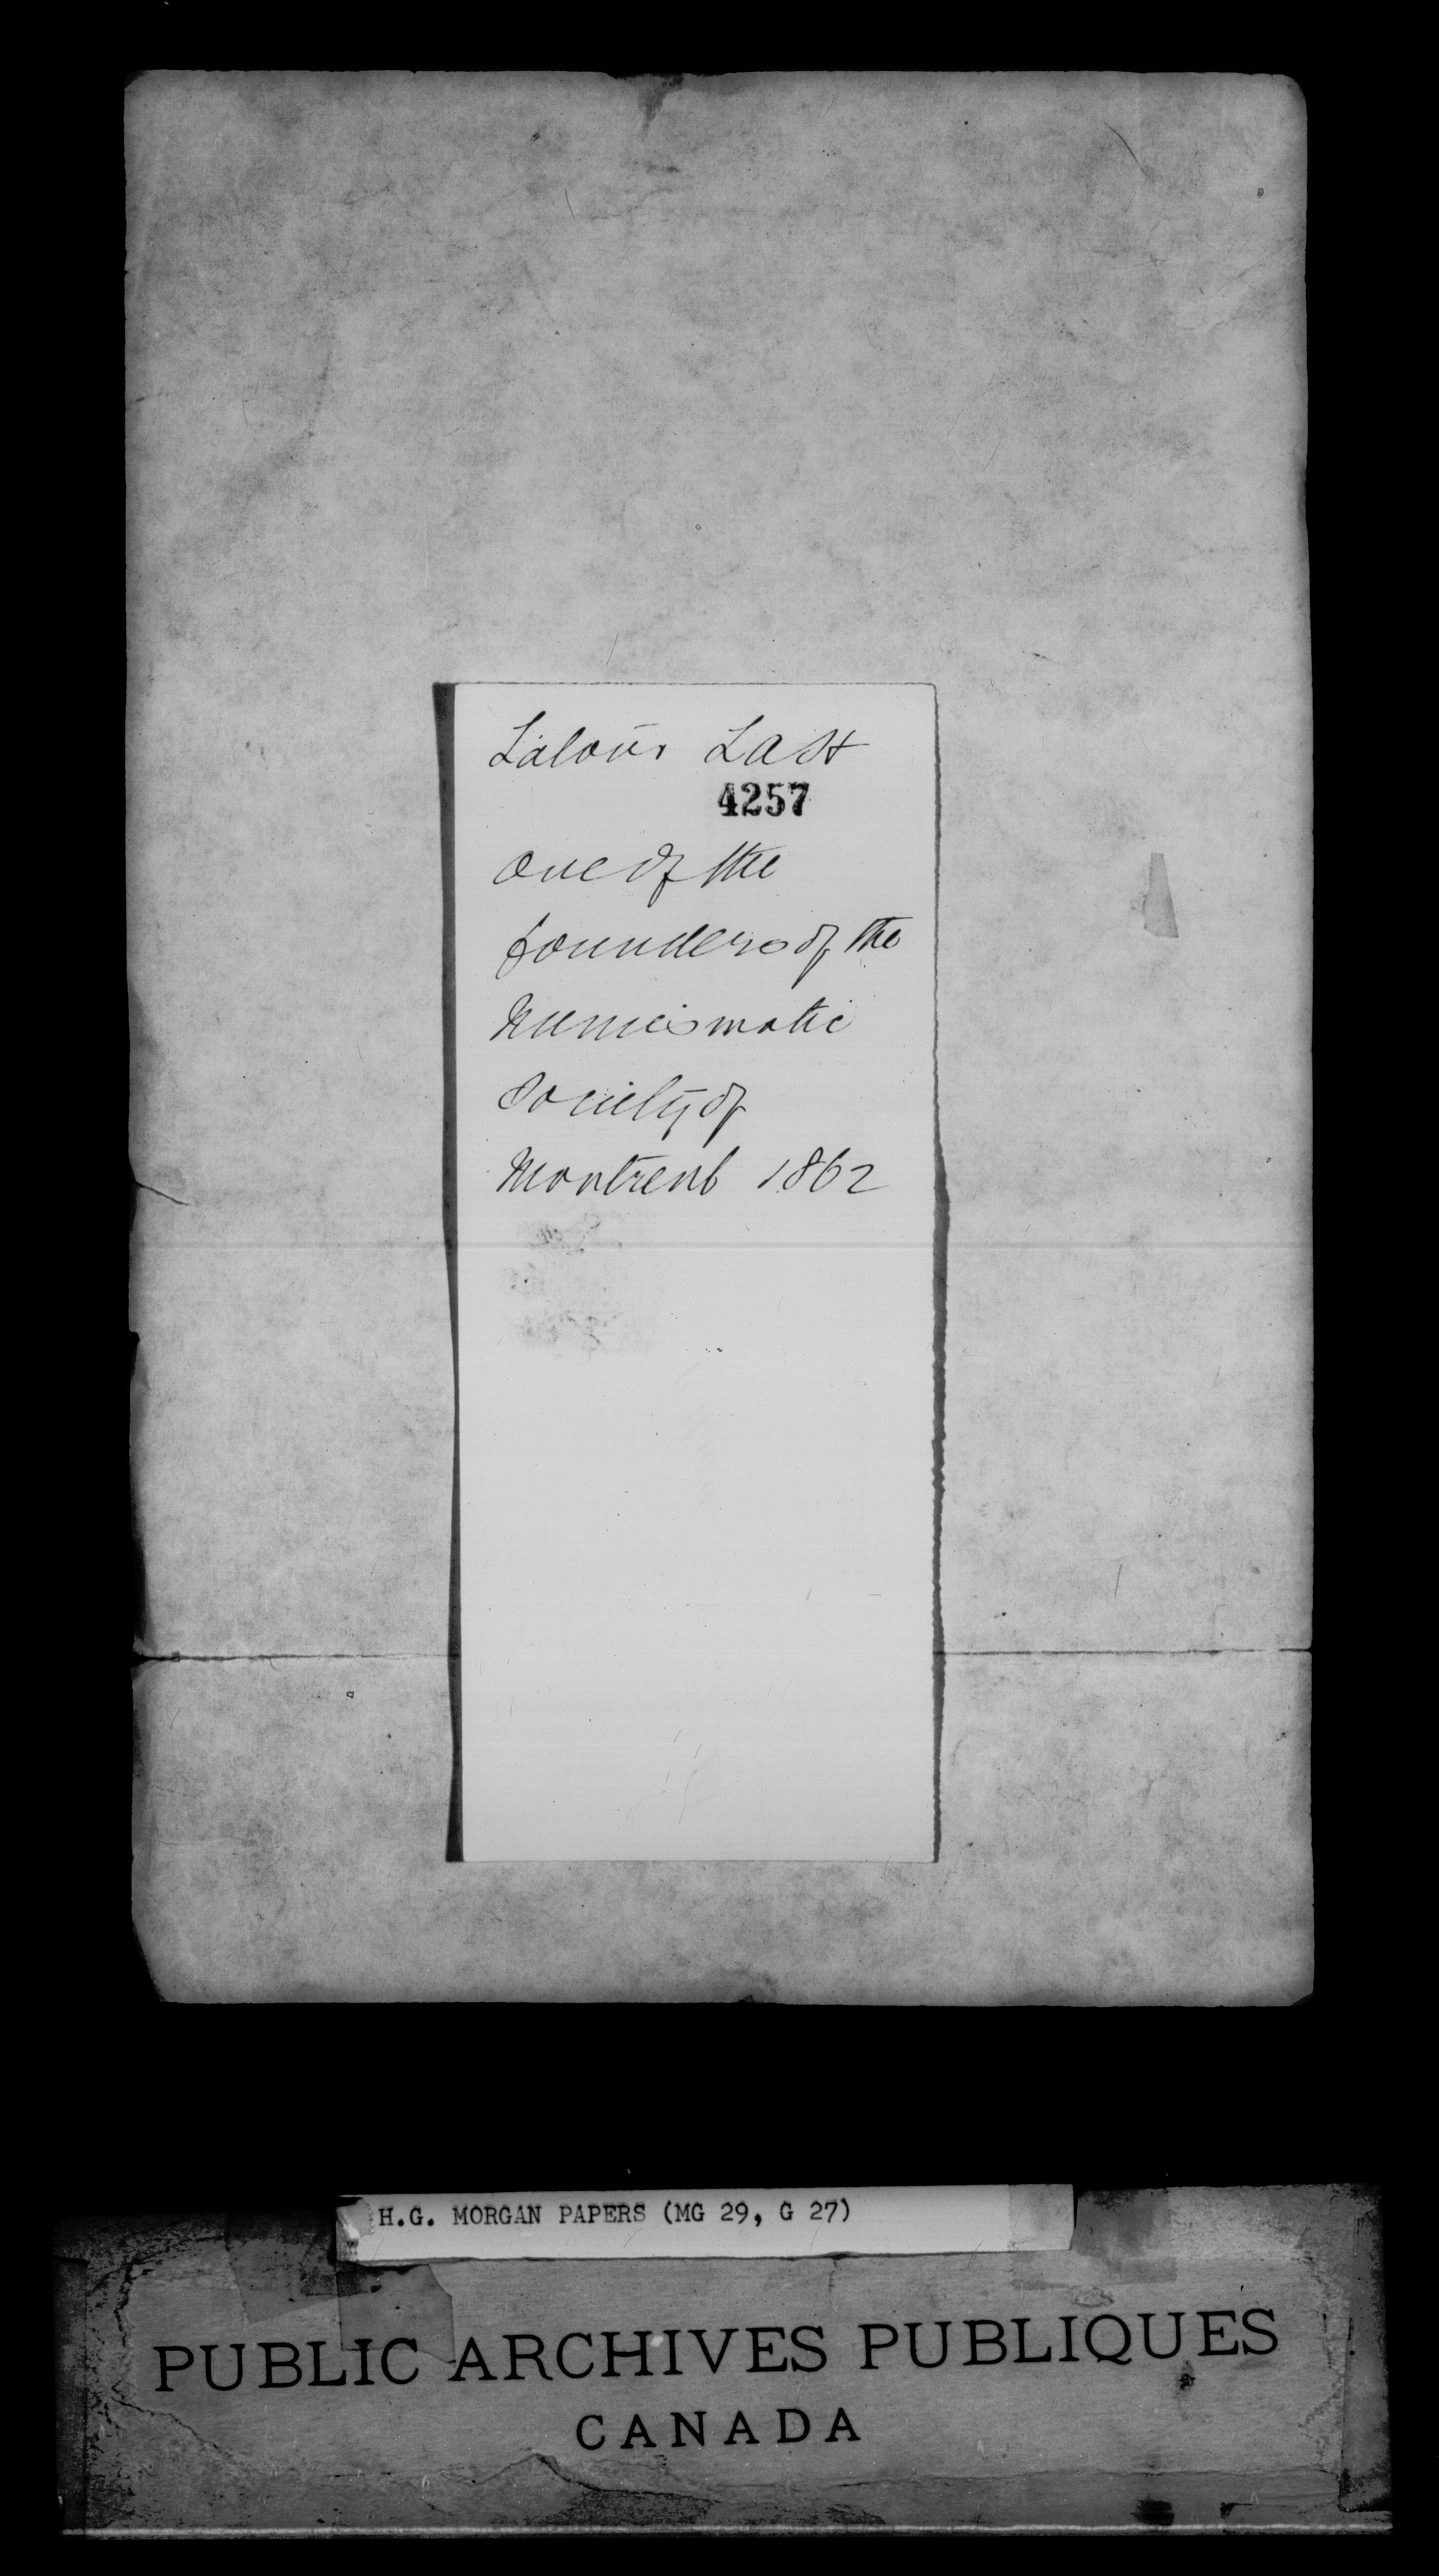 Latour Last
4257
one of the
founders of the
Numismatic
Society of
Montreal 1862
H.G. MORGAN PAPERS (MG 29, G 27)
PUBLIC ARCHIVES PUBLIQUES
CANADA